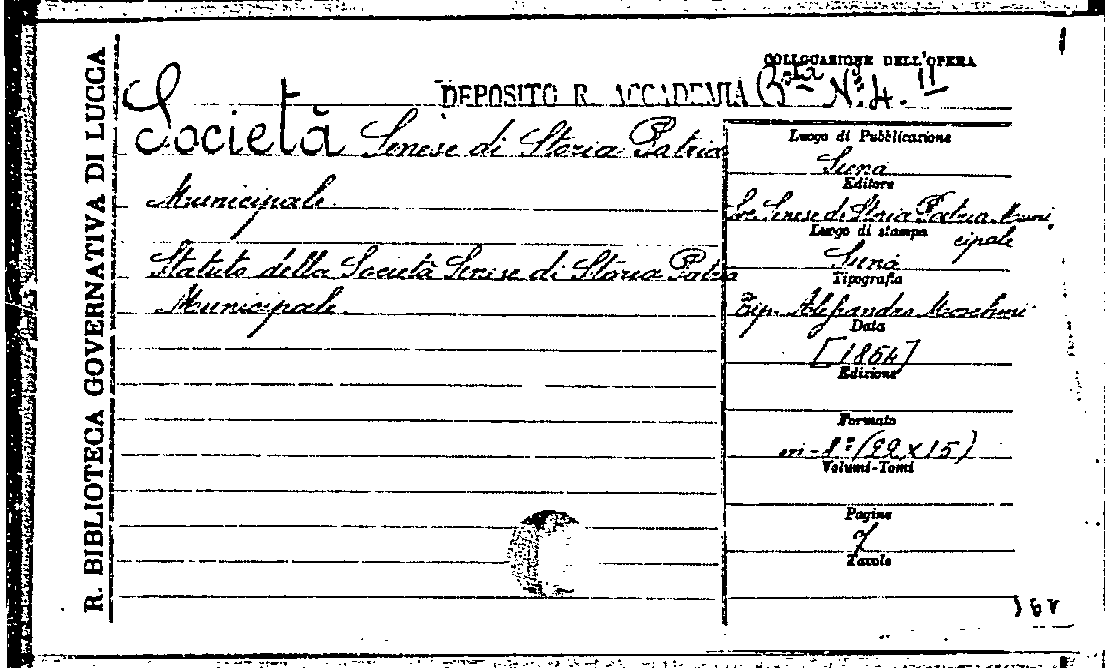 R. BIBLIOTECA GOVERNATIVA DI LUCCA
COLLOCAZIONE DELL'OPERA
DEPOSITO R. ACCADEMIA
Società Senese di Storia Patria
Municipale.
Statuto della Società Senese di Storia Patria
Municipale.
Luogo di Pubblicazione
Siena
Editore
Soc. Senese di Storia Patria Muni
cipale
Luogo di stampa
Siena
Tipografia
Tip. Alessandro Moschini
Data
[1864]
Edizione
Formato
in-8° (22 x 15)
Volumi-Tomi
Pagine
7
Tavole